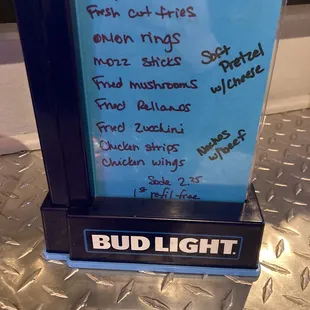 Fresh cut fries
onion rings
mozz sticks
Fried mushrooms
Fried Rellanos
Fried Zucchini
Chicken strips
Chicken wings
Soft
Pretzel
w/cheese
Nachos
w/beef
Soda 2.25
1st refil-free
BUD LIGHT